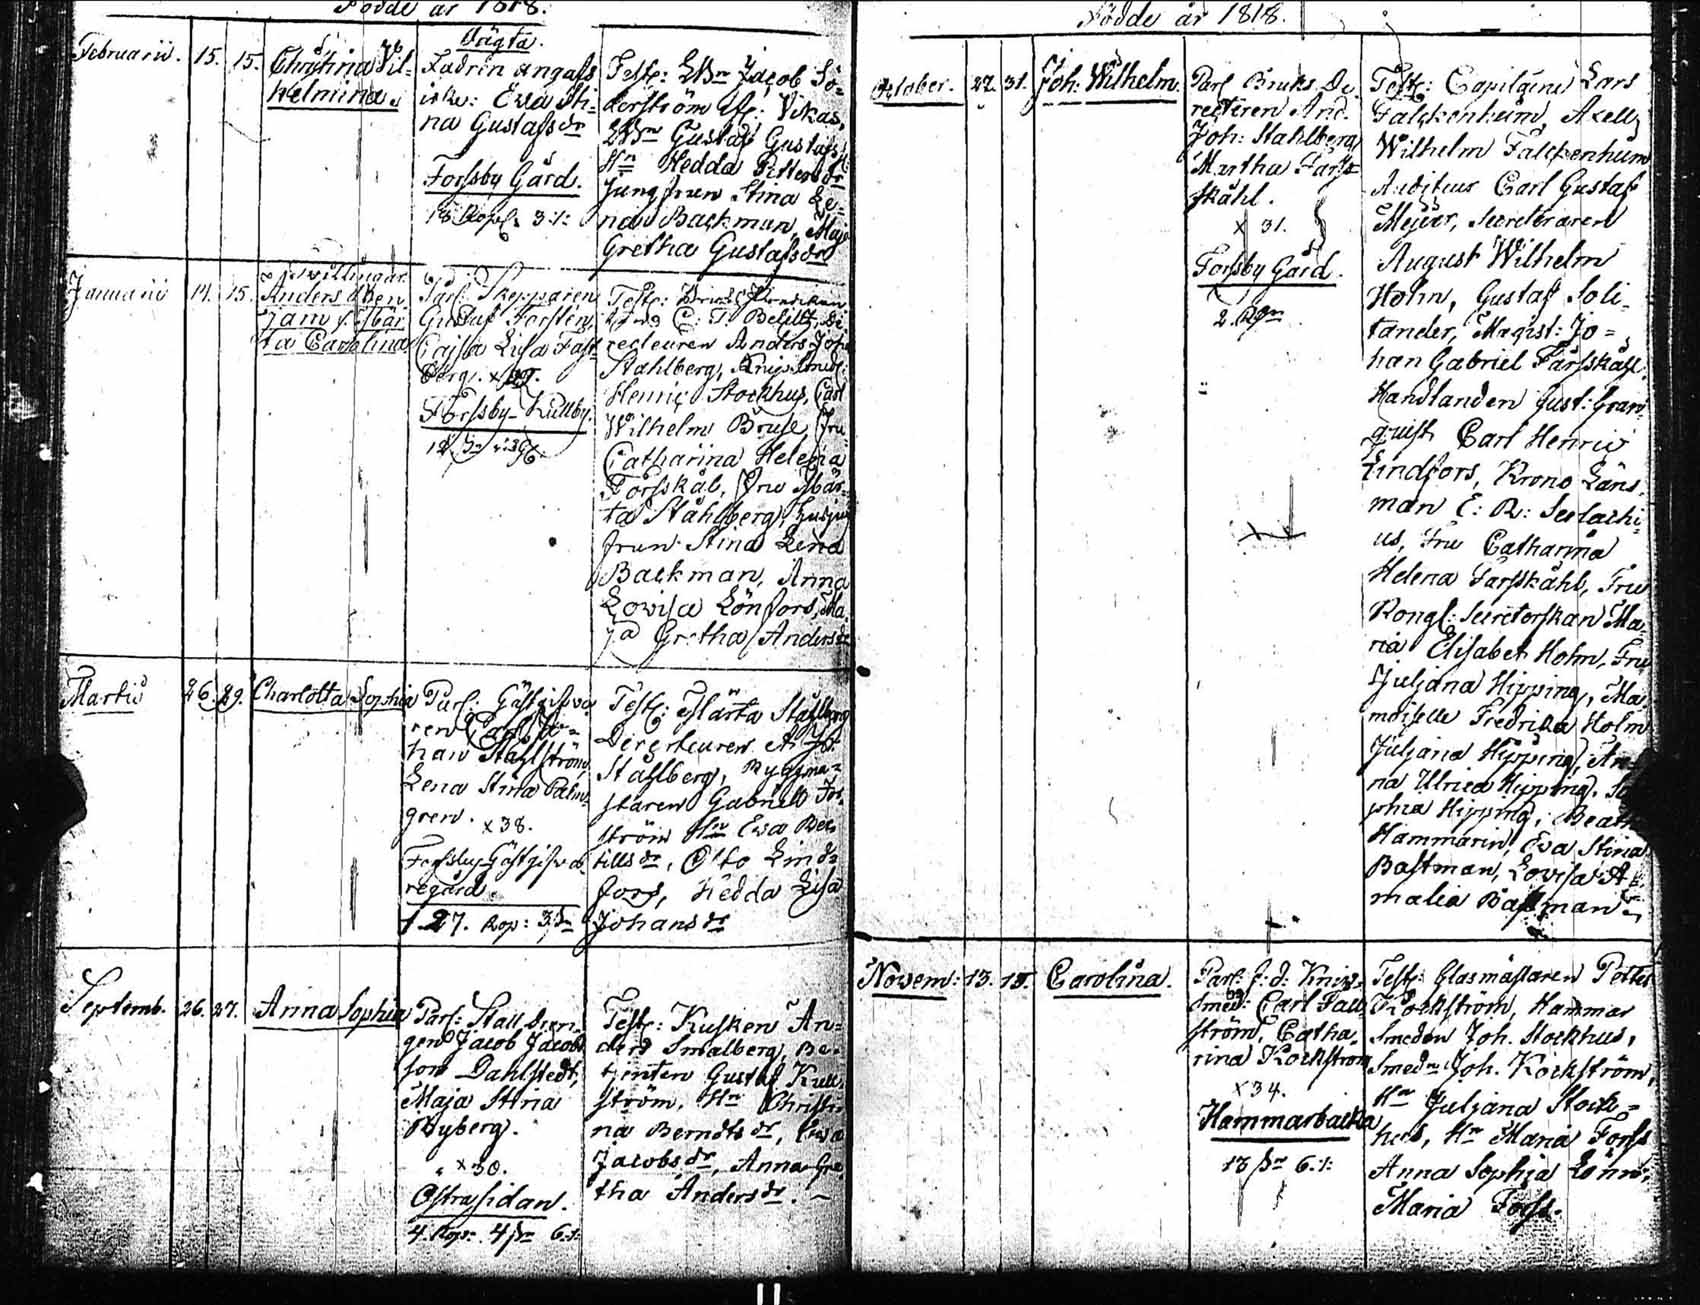 Födde år 1818.
Februarii. 15. 15.
Christina Vil-
helmina.
Otrigta.
Ladrin
iska: Ewa Sti-
na Gustafsdr
Forssby Gård.
18 Kop. 3 s:
Test: Jacob Sö-
derström
Gustaf Gustafss
Hn Hedda Pettersdr
Jungfrun Stina Le-
na Backman, Maja
Gretha Gustafsdr
Januarii 14. 15.
Tvillingar
Anders Ben
jam: Mär
ta Carolina
Par: Skepparen
Gustaf Forsten,
Cajsa Lisa Fast
berg. x 29.
Forssby Kullby.
Test: Bruks Predikan
C: T: Di
recteuren Anders Joh
Stahlberg, Knipsmed:
Henric Stockhus, Carl
Wilhelm Bruse Fru
Catharina Helena
Forsskål, Fru Mär-
ta Ståhlberg,
frun Stina Lena
Backman, Anna
Lovisa Lönfors, Ma
ja Gretha Andersdr
Martii 26. 29.
Charlotta Sophia
Par: Gästgifva
ren Carl Jo-
han Stahlström,
Lena Stina Palm-
gren. x 38.
Forssby Gästgifva
regård.
1 27. Kop: 3 sn
Test: Märta Ståhlberg
Directeuren A: Joh:
Ståhlberg, Byggmä-
staren Gabriel For-
ström Hn Ewa Ber
tillsdr, Otto Lind-
fors, Hedda Lisa
Johansdr
Septemb. 26. 27.
Anna Sophia
Par: Stall Dren-
gen Jacob Jacobs
son Dahlstedt,
Maja Stina
Nyberg.
x 30.
Östrasidan.
4 Kop: 4 sn 6 s:
Test: Kusken An-
ders Smalberg, Be-
tjenten Gustaf Kull-
ström, Hn Christi
na Berndtsdr, Ewa
Jacobsdr, Anna Gre
tha Andersdr. –
Födde år 1818.
October. 27. 31.
Joh: Wilhelm.
Par: Bruks Di
recteren And.
Joh: Stahlberg
Martha Fårss
skåhl.
x 31.
Forssby Gård.
Test: Capitaine Lars
Falckenheim, Axell
Wilhelm Falckenheim
Auditeur Carl Gustaf
Mejer, Secreteraren
August Wilhelm
Holm, Gustaf Soli-
tander, Magist: Jo-
han Gabriel Fårsskåhl,
Handlanden Gust: Gran
quist, Carl Henric
Lindfors, Krono Läns-
man E: R: Serlachi-
us, Fru Catharina
Helena Fårsskåhl, Fru
Kongl: Secretorskan Ma-
ria Elisabet Holm, Fru
Juliana Hipping, Ma
moiselle Fredrika Holm
Juliana Hipping, An-
na Ulrica Hipping, So
phia Hipping, Beata
Hammarin, Eva Stina
Bastman, Lovisa A-
malia Bastman
Novem: 13. 15.
Carolina.
Par: f: d: Knip-
smed: Carl Fall
ström, Catha-
rina Kockström
x 34.
Hammarbacka
18 sn 6 s:
Test: Glasmästaren Petter
Kockström, Hammar
smeden Joh. Stockhus,
Smedn Joh. Kockström,
Hn Juliana Stock-
hus, Hn Maria Forss
Anna Sophia Lönn,
Maria Forss.